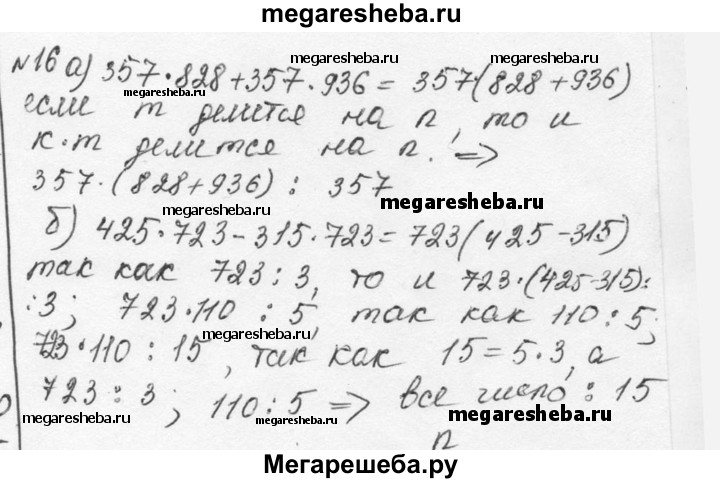 megaresheba.ru
№16 а) 357·828+357·936= 357·(828+936)
megaresheba.ru
megaresheba.ru
если m делится на n, то и
к·m делится на n. =>
megaresheba.ru
357·(828+936) ⋮ 357
megaresheba.ru
megaresheba.ru
б) 425·723-315·723=723(425-315)
так как 723⋮3, то и 723·(425-315)⋮
⋮3; 723·110 ⋮ 5, так как 110⋮5;
megaresheba.ru
megaresheba.ru
723·110⋮15, так как 15=5·3, а
723⋮3; 110⋮5 => все число ⋮ 15
megaresheba.ru
megaresheba.ru
megaresheba.ru
n
Мегарешеба.ру